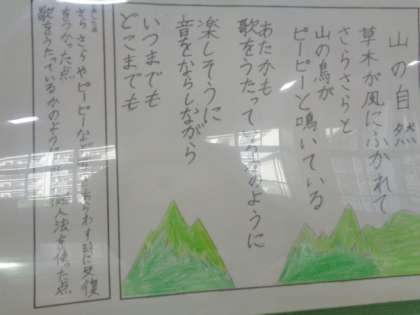 山の自然
草木が風にふかれて
さらさらと
山の鳥が
ピーピーと鳴いている
あたかも
歌をうたっているかのように
楽しそうに
音をならしながら
いつまでも
どこまでも
さらさらやピーピーなど
をつかった点
歌をうたっているかのように
人法を使った点